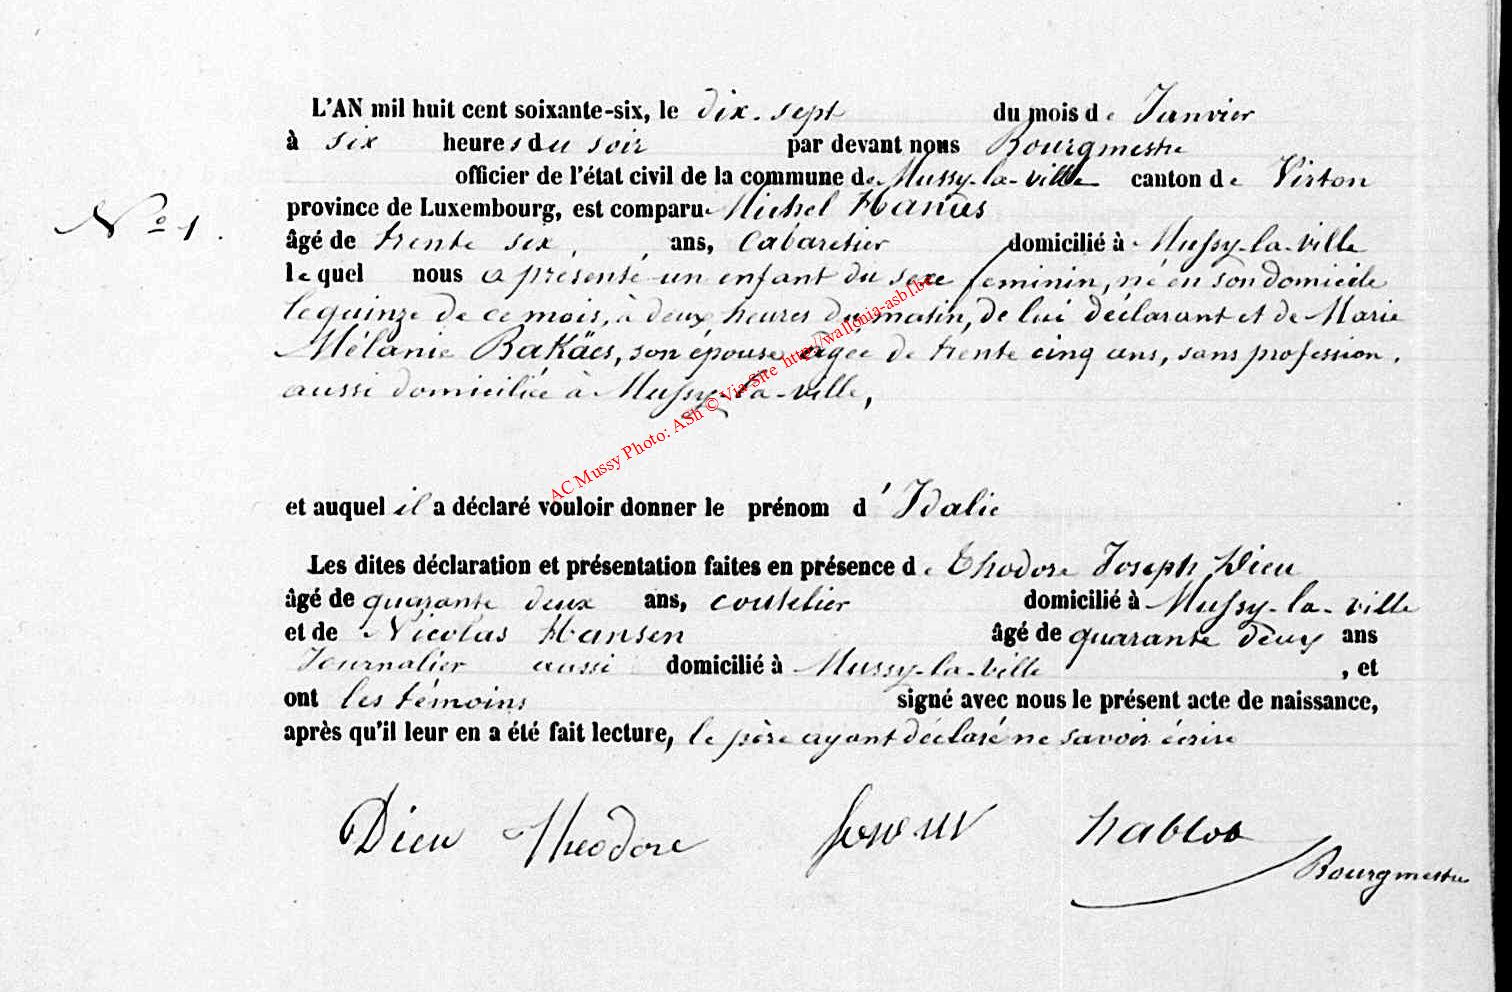 L'AN mil huit cent soixante-six, le dix-sept du mois de Janvier
à six heures du soir par devant nous Bourgmestre
officier de l'état civil de la commune de Mussy-la-ville canton de Virton
province de Luxembourg, est comparu Michel Hanus
N° 1.
âgé de trente six ans, Cabaretier domicilié à Mussy-la-ville
lequel nous a présenté un enfant du sexe feminin, né en son domicile
le quinze de ce mois, à deux heures du matin, de lui déclarant et de Marie
Mélanie Bakäes, son épouse agée de trente cinq ans, sans profession,
aussi domiciliée à Mussy-la-ville,
AC Mussy Photo: ASh © Via Site http://wallonia-asbl.be
et auquel il a déclaré vouloir donner le prénom d'Idalie
Les dites déclaration et présentation faites en présence de Thodore Joseph Dieu
âgé de quarante deux ans, coutelier domicilié à Mussy-la-ville
et de Nicolas Hansen âgé de quarante deux ans
Journalier aussi domicilié à Mussy-la-ville, et
ont les témoins signé avec nous le présent acte de naissance,
après qu'il leur en a été fait lecture, le père ayant déclaré ne savoir écrire
Dieu Theodore
Bourgmestre